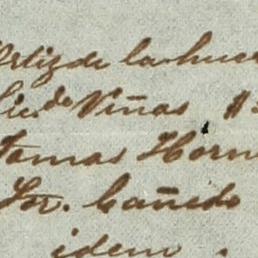 Ortiz de la hue
Lic.do Viñas
Tomas Horn
Sor. Cañedo
idem.